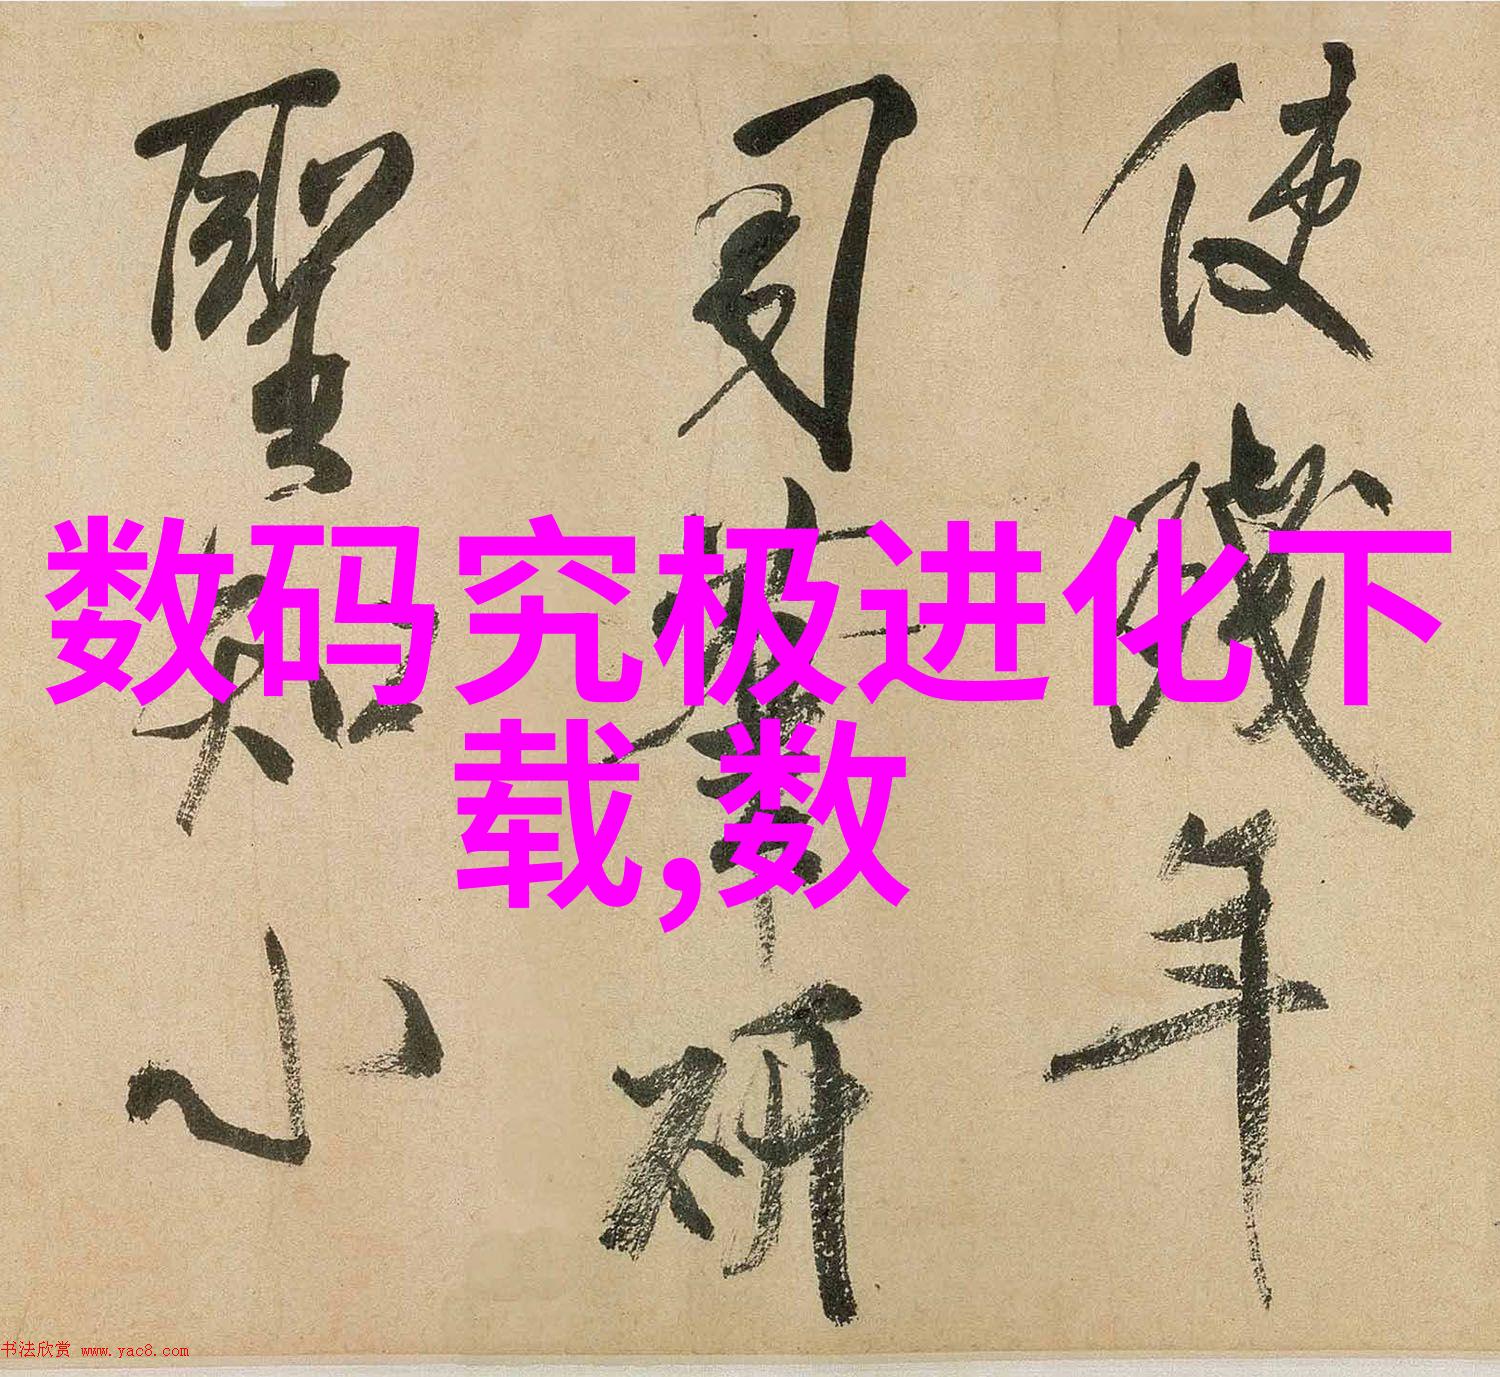 使殘年
司筆研
聖知小
数码究极进化下
载,数
书法欣赏 www.yac8.com